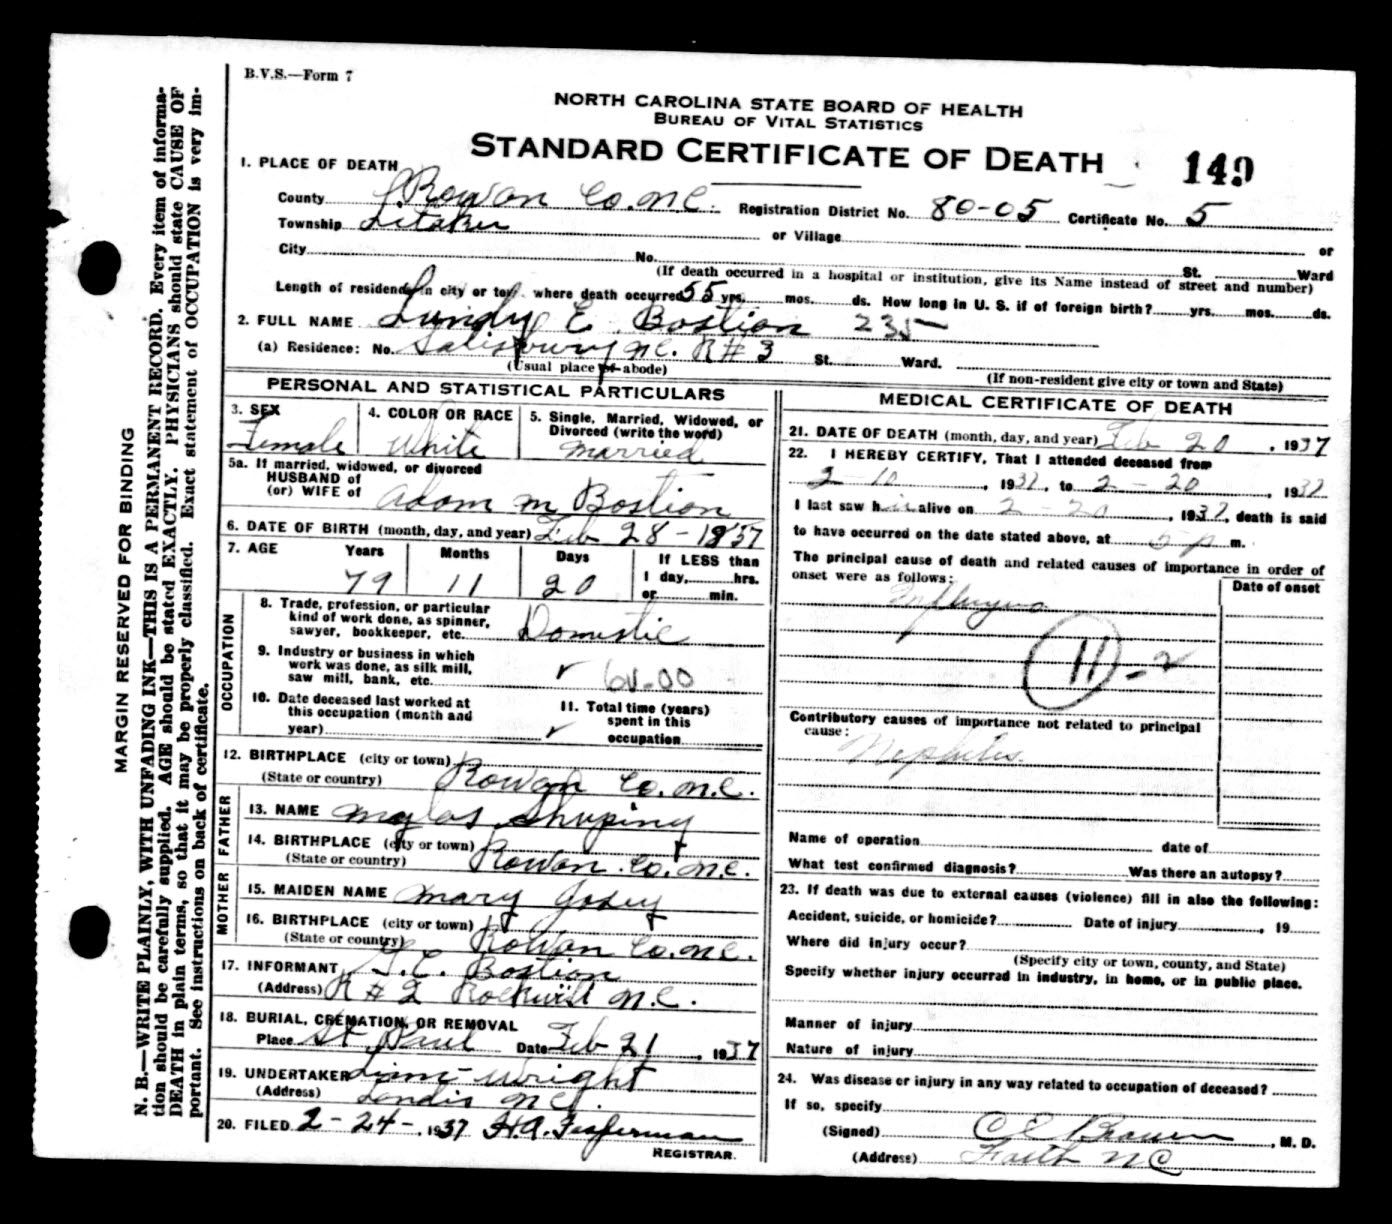 B.V.S.—Form 7
NORTH CAROLINA STATE BOARD OF HEALTH
BUREAU OF VITAL STATISTICS
STANDARD CERTIFICATE OF DEATH 149
1. PLACE OF DEATH
County Rowan Co. N.C. Registration District No. 80-05 Certificate No. 5
Township Litaker or Village or
City No. St. Ward
(If death occurred in a hospital or institution, give its Name instead of street and number)
Length of residence in city or town where death occurred 55 yrs. mos. ds. How long in U. S. if of foreign birth? yrs. mos. ds.
2. FULL NAME Lundy E. Bostion 235
(a) Residence: No. Salisbury N.C. R#3 St. Ward.
(Usual place of abode) (If non-resident give city or town and State)
PERSONAL AND STATISTICAL PARTICULARS
3. SEX 4. COLOR OR RACE 5. Single, Married, Widowed, or
Divorced (write the word)
Female White Married
5a. If married, widowed, or divorced
HUSBAND of
(or) WIFE of Adam M Bostion
6. DATE OF BIRTH (month, day, and year) Feb 28-1857
7. AGE Years Months Days If LESS than
79 11 20 1 day, hrs.
or min.
OCCUPATION
8. Trade, profession, or particular
kind of work done, as spinner,
sawyer, bookkeeper, etc. Domestic
9. Industry or business in which
work was done, as silk mill,
saw mill, bank, etc.
10. Date deceased last worked at
this occupation (month and
year)
11. Total time (years)
spent in this
occupation
12. BIRTHPLACE (city or town)
(State or country) Rowan Co. N.C.
FATHER
13. NAME Mylas Shuping
14. BIRTHPLACE (city or town)
(State or country) Rowan Co. N.C.
MOTHER
15. MAIDEN NAME Mary
16. BIRTHPLACE (city or town)
(State or country) Rowan Co. N.C.
17. INFORMANT Bostion
(Address) R#2 Rockwell N.C.
18. BURIAL, CREMATION, OR REMOVAL
Place St Paul Date Feb 21, 1937
19. UNDERTAKER Wright
(Address) Landis N.C.
20. FILED 2-24-, 1937 H.A. Fisherman
REGISTRAR.
MEDICAL CERTIFICATE OF DEATH
21. DATE OF DEATH (month, day, and year) Feb 20, 1937
22. I HEREBY CERTIFY, That I attended deceased from
2-10, 1937, to 2-20, 1937
I last saw h alive on 2-20, 1937, death is said
to have occurred on the date stated above, at 5 p m.
The principal cause of death and related causes of importance in order of
onset were as follows: Date of onset
Influenza
11-2
Contributory causes of importance not related to principal
cause:
Nephritis
Name of operation date of
What test confirmed diagnosis? Was there an autopsy?
23. If death was due to external causes (violence) fill in also the following:
Accident, suicide, or homicide? Date of injury , 19
Where did injury occur?
(Specify city or town, county, and State)
Specify whether injury occurred in industry, in home, or in public place.
Manner of injury
Nature of injury
24. Was disease or injury in any way related to occupation of deceased?
If so, specify
(Signed) , M. D.
(Address) Faith N C
MARGIN RESERVED FOR BINDING
N. B.—WRITE PLAINLY, WITH UNFADING INK—THIS IS A PERMANENT RECORD. Every item of informa-
tion should be carefully supplied. AGE should be stated EXACTLY. PHYSICIANS should state CAUSE OF
DEATH in plain terms, so that it may be properly classified. Exact statement of OCCUPATION is very im-
portant. See instructions on back of certificate.